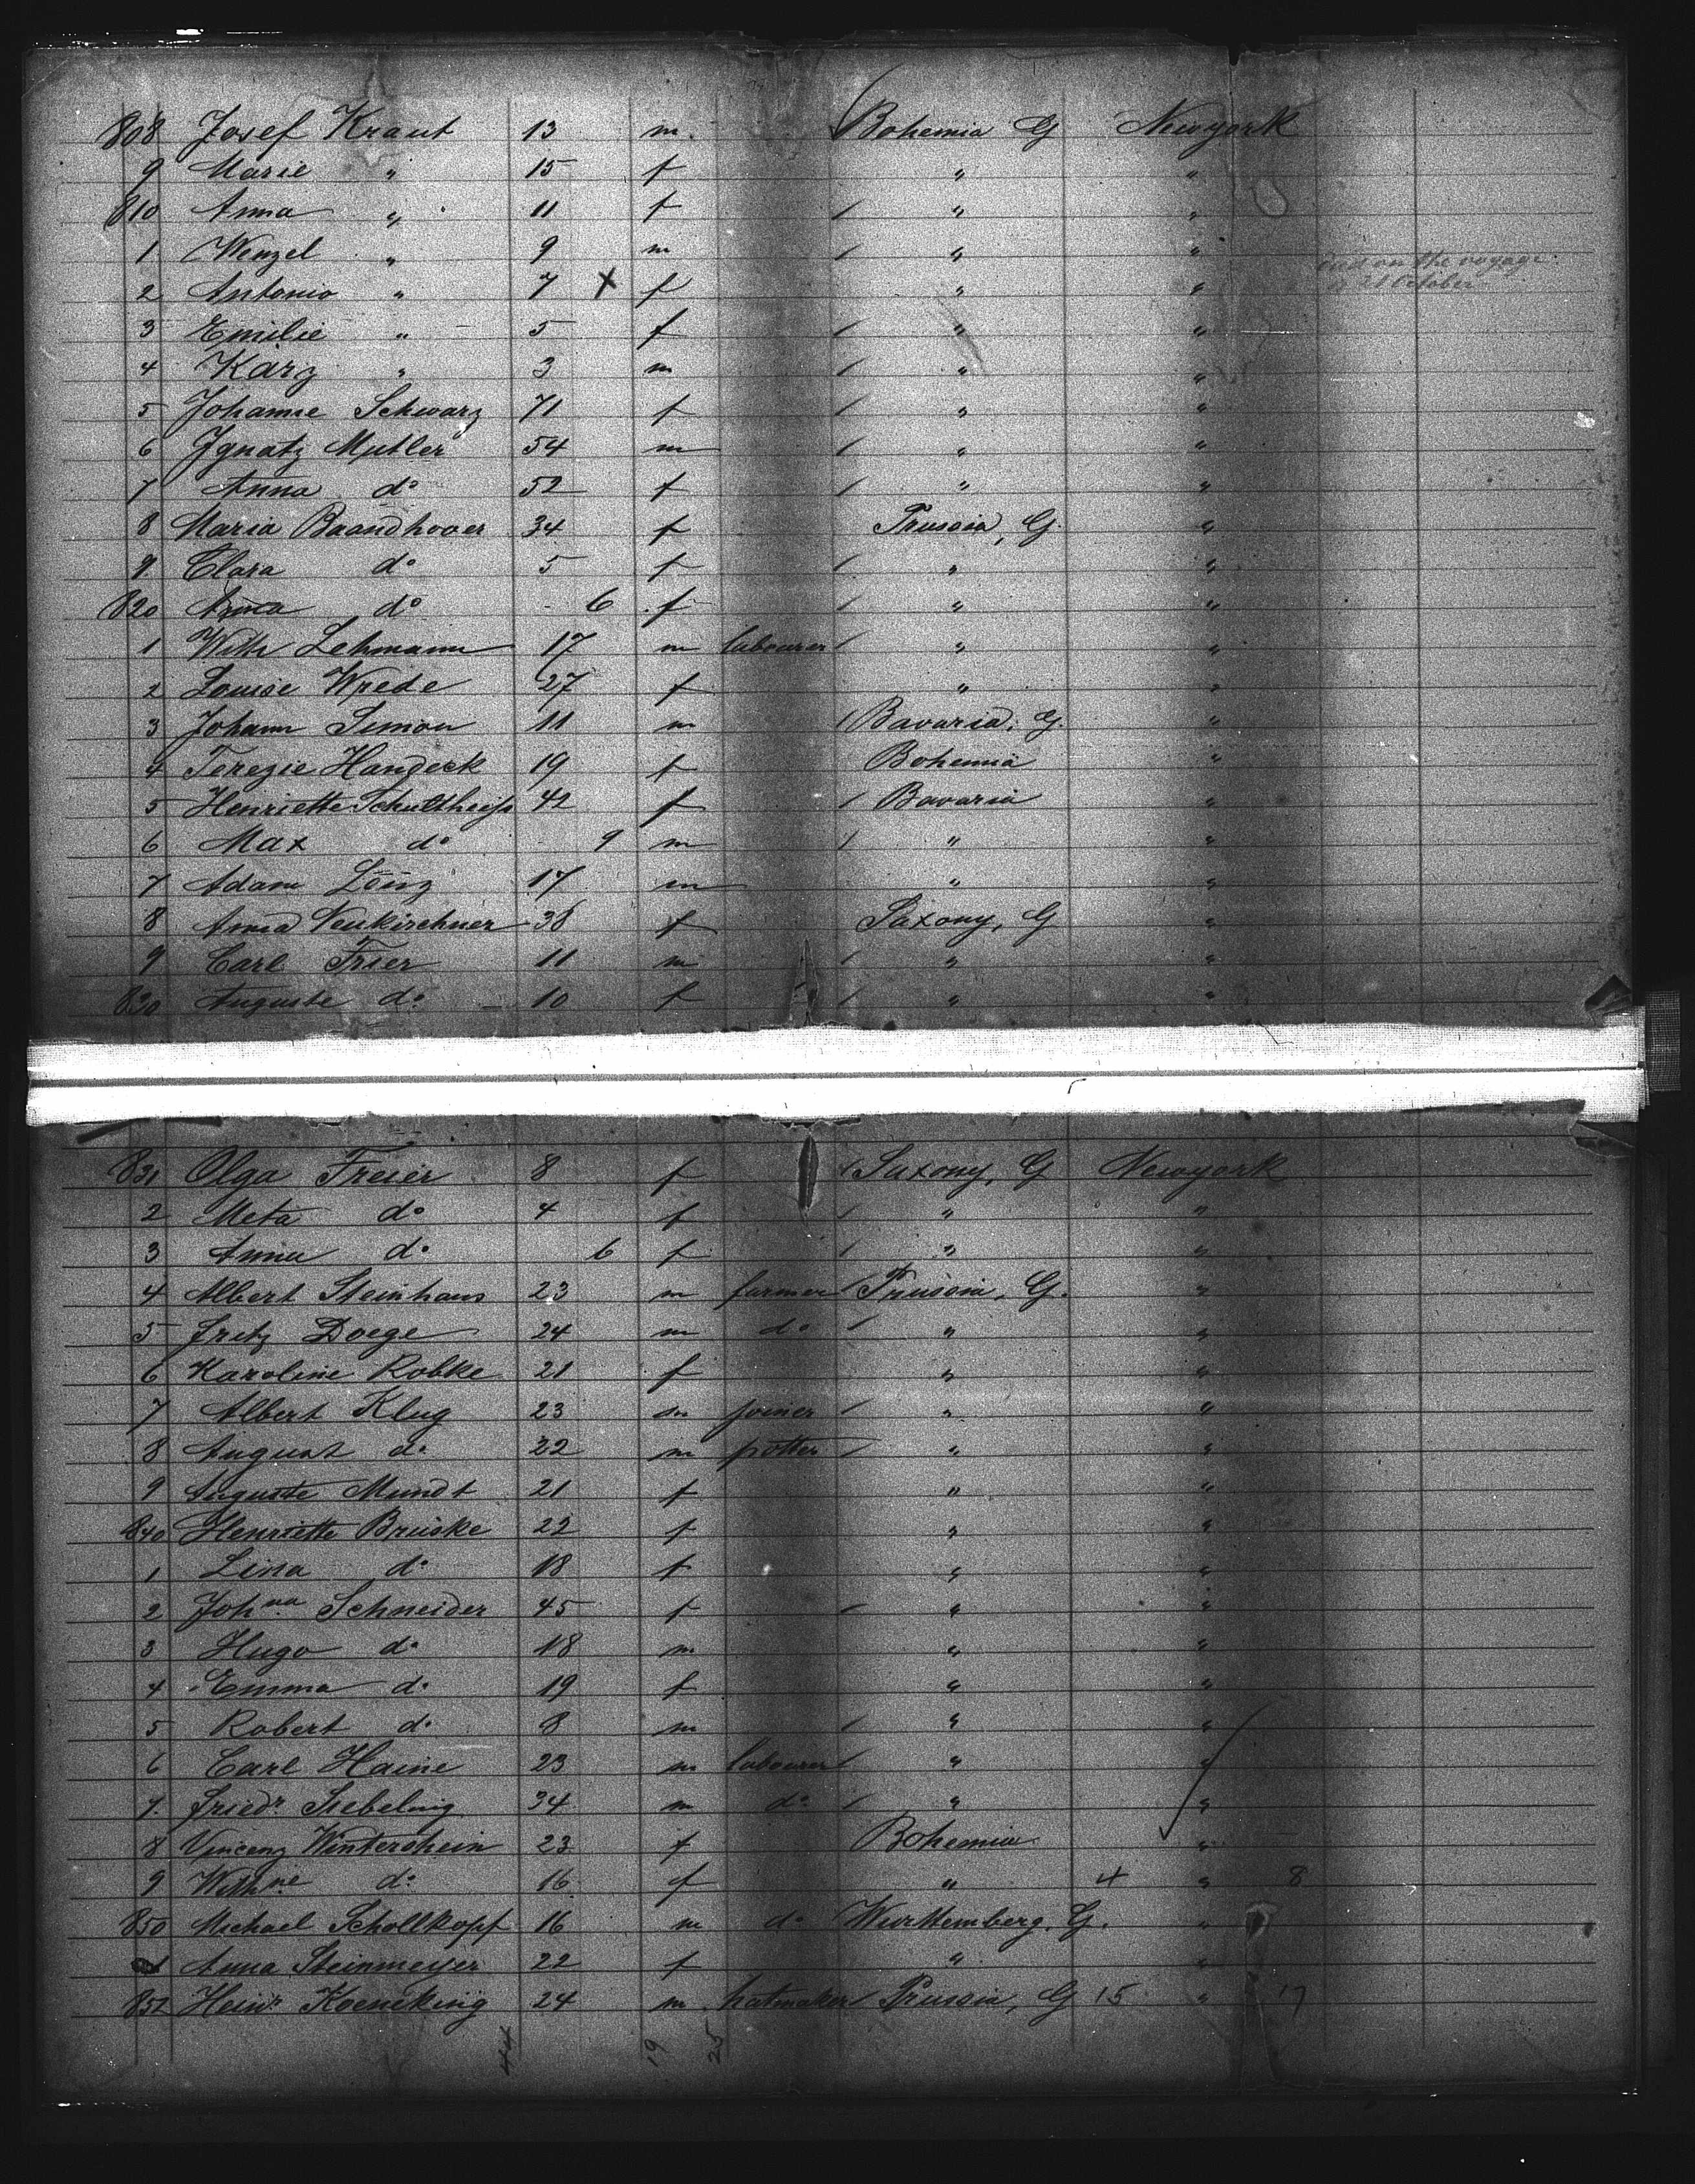 808 Josef Kraut 13 m. Bohemia G Newyork
9 Marie " 15 f " "
810 Anna " 11 f " "
1 Wenzel " 9 m " "
2 Antonio " 7 X f " " on the voyage 21 October
3 Emilie " 5 f " "
4 Karz " 3 m " "
5 Johanne Schwarz 71 f " "
6 Ignatz 54 m " "
7 Anna do 52 f " "
8 Maria Baandhover 34 f Prussia, G. "
9. Clara do 5 f " "
820 Anna do 6 f " "
1 Wilh Lehmann 17 m labourer " "
2 Louise Wrede 27 f " "
3 Johann Simon 11 m Bavaria, G. "
4 Terezie Handeck 19 f Bohemia "
5 Henriette Schultheiß 42 f Bavaria "
6 Max do 9 m " "
7 Adam 17 m " "
8 Anna Neukirchner 38 f Saxony, G "
9 Carl Frier 11 m " "
830 Auguste do 10 f " "
831 Olga Freier 8 f Saxony, G Newyork
2 Meta do 4 f " "
3 Anna do 6 f " "
4 Albert Steinhaus 23 m farmer Prussia, G. "
5 Fritz Doege 24 m do " "
6 Karoline Robke 21 f " "
7 Albert Klug 23 m joiner " "
8 August do 22 m potter " "
9 Auguste Mundt 21 f " "
840 Henriette Bruske 22 f " "
1 Lina do 18 f " "
2 Johna Schneider 45 f " "
3 Hugo do 18 m " "
4 Emma do 19 f " "
5 Robert do 8 m " "
6 Carl Haine 23 m labourer " "
7. Friedr. Siebelnig 34 m do " "
8 Vincenz Winterohein 23 f Bohemia "
9 Wilhne do 16 f " 4 " 8
850 Michael Schollkopf 16 m do Wurttemberg. G. "
1 Anna Steinmeyer 22 f " "
852 Heinr Koeneking 24 m hatmaker Prussia, G 15 " 17
44 19 25